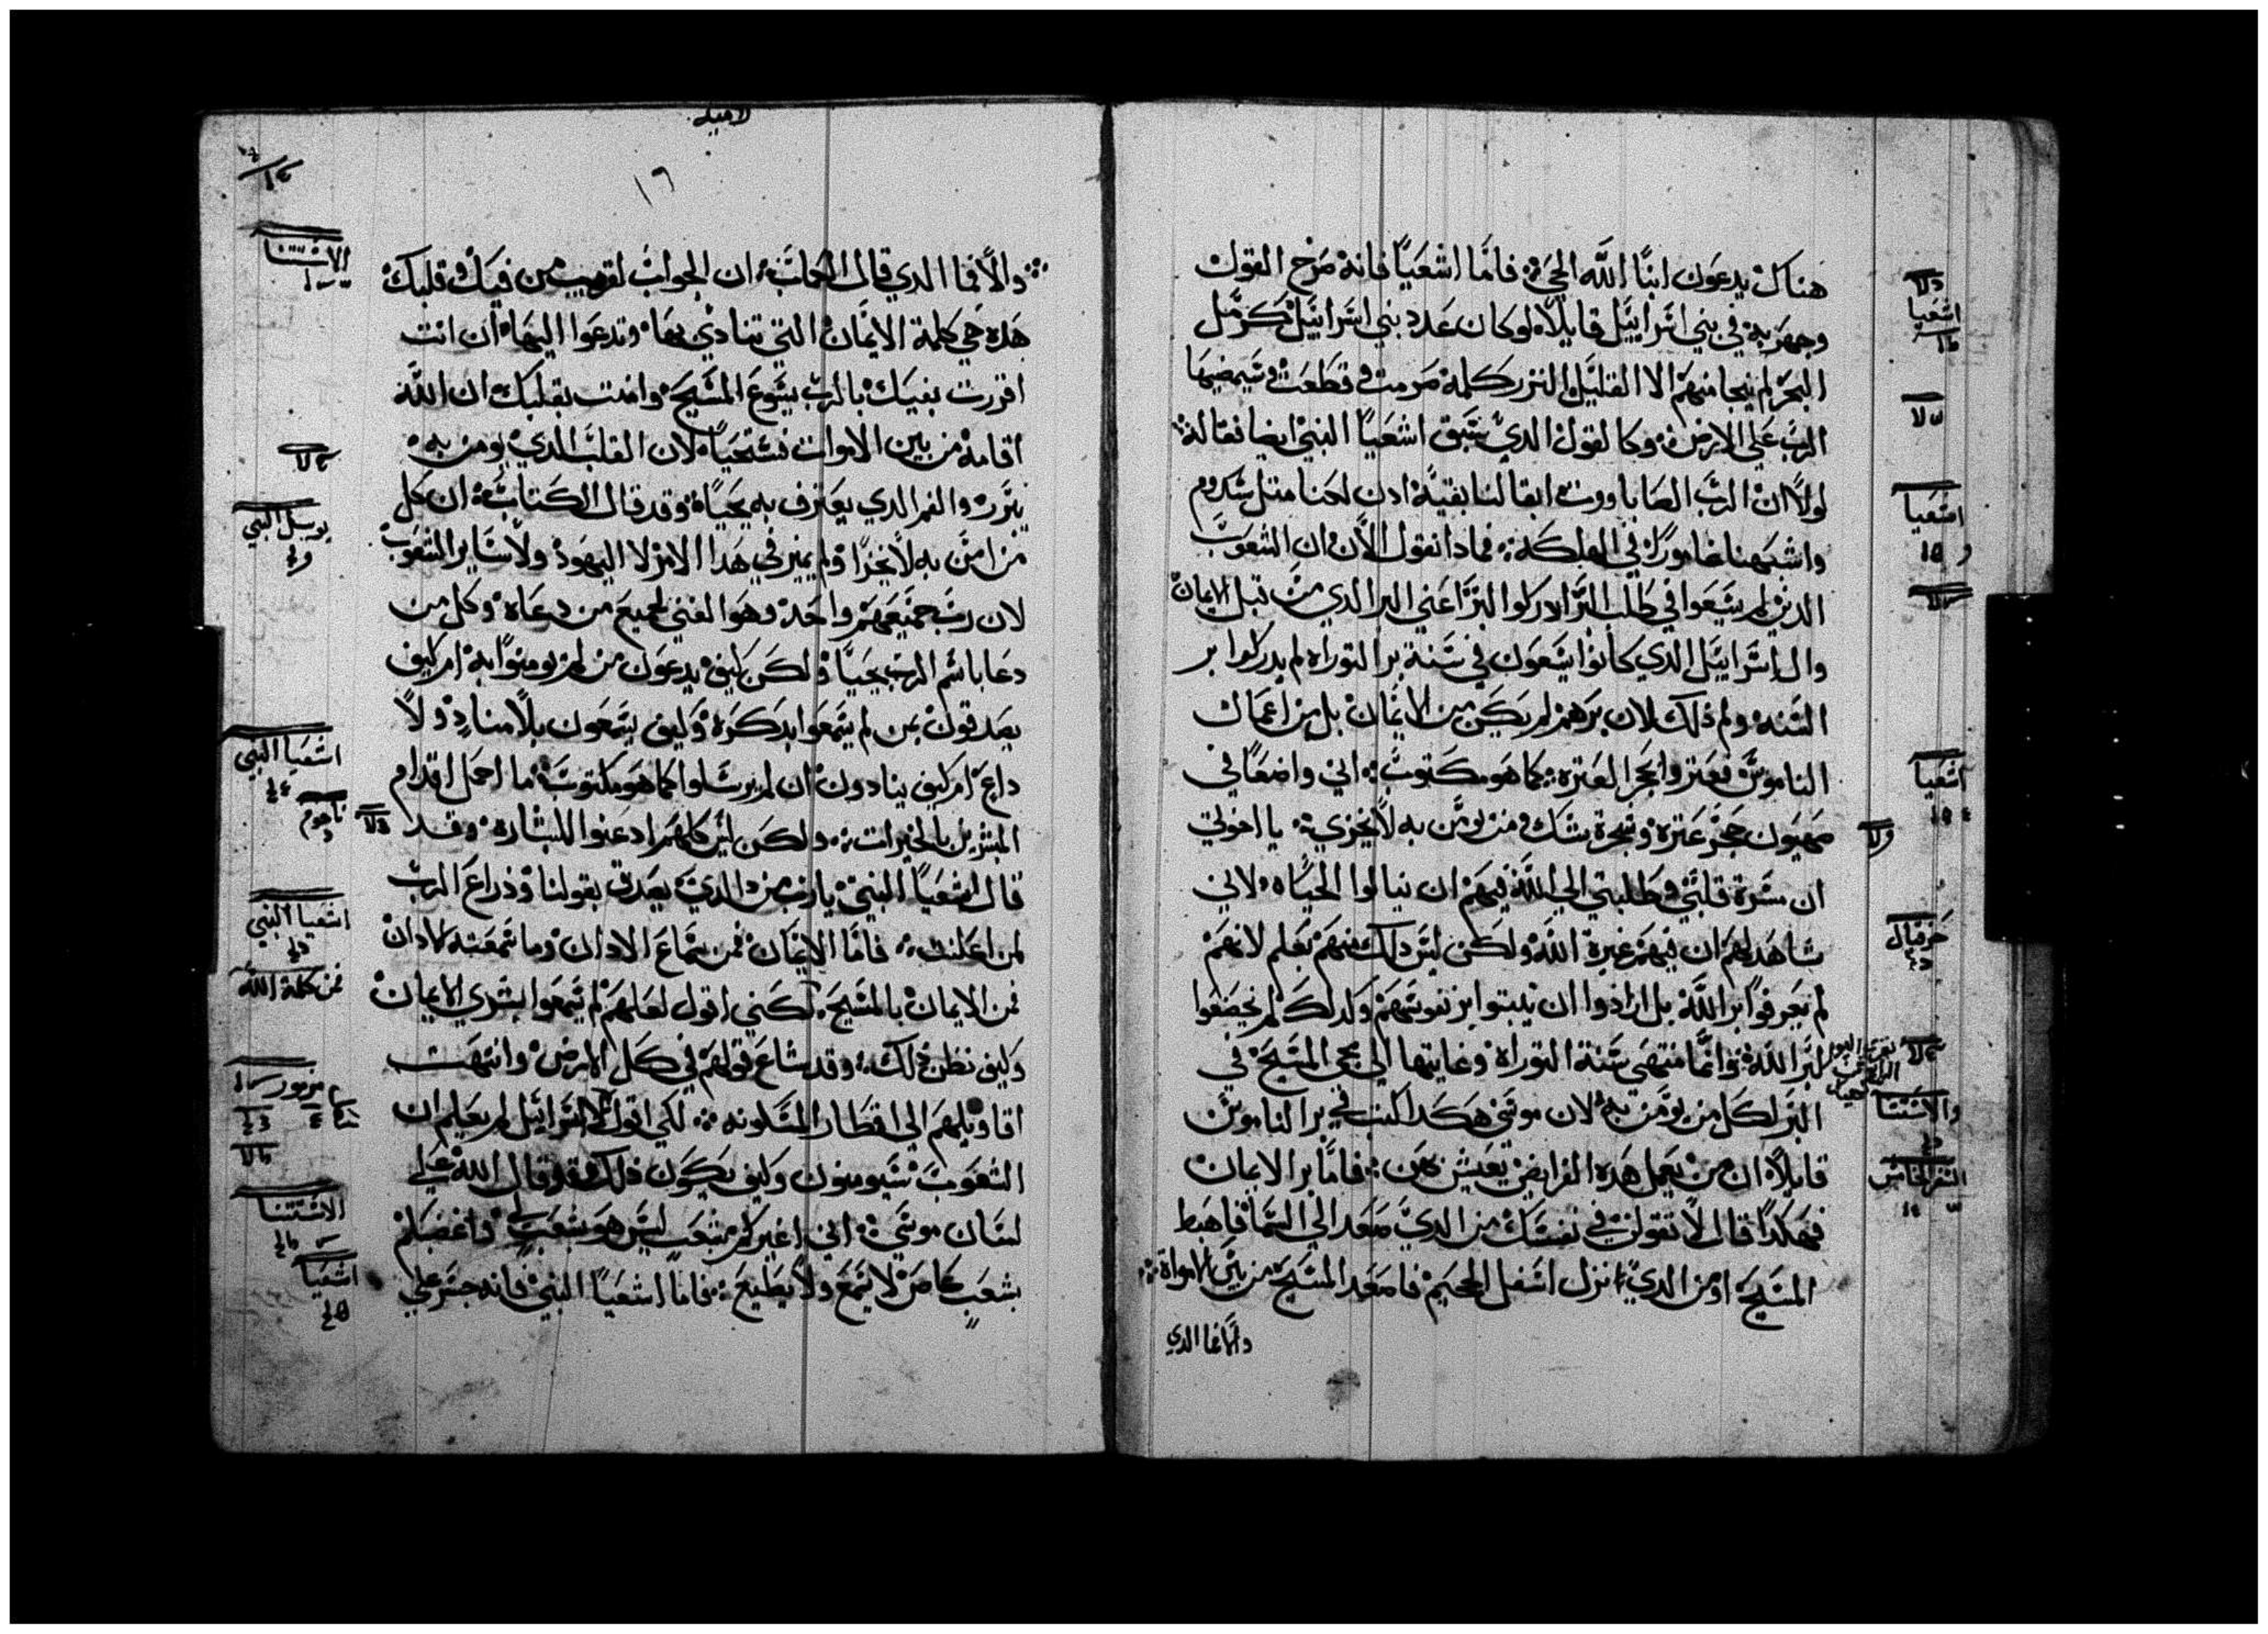 هناك يدعون ابنا الله الحي؞ فاما اشعيا فانه صرخ القول
وجهر به في بني اسراييل قايلا لو كان عدد بني اسراييل كرمل
البحر لم ينجا منهم الا القليل النزر كلمة صرمت وقطعت وسيمضيها
الرب علي الارض؞ وكالقول الدي سبق اشعيا النبي ايضا فقاله
لولا ان الرب الصاباووت ابقا لنا بقية ادن لكنا متل سدوم
واشبهنا غامورا في الهلكة؞ فمادا نقول الان ان الشعوب
الدين لم يسعوا في طلب البر ادركوا البر اعني البر الدي من قبل الايمان
وال اسراييل الدي كانوا يسعون في سنة بر التوراه لم يدركوا بر
السنه ولم ذلك لان برهم لم يكن من الايمان بل من اعمال
الناموس فعتروا بحجر العتره؞ كما هو مكتوب؞ اني واضعا في
صهيون حجر عتره وصخرة شك ومن يومن به لا يخزي؞ يا اخوتي
ان مسرة قلبي وطلبتي الي الله فيهم ان ينالوا الحياه لاني
شاهد لهم ان فيهم غيرة الله ولكن ليس دلك منهم بعلم لانهم
لم يعرفوا بر الله بل ارادوا ان يتبتوا بر نفوسهم ولدلك لم يخضعوا
لبر الله؞ وانما منتهي سنة التوراه وغايتها الي مجي المسيح في
البر لكل من يومن به لان موسي هكدا كتب في بر الناموس
قايلا ان من يعمل هده الفرايض يعيش بهن؞ فاما بر الايمان
فهكدا قال لا تقولن في نفسك من الدي صعد الي السما فاهبط
المسيح او من الدي نزل اسفل الجحيم فاصعد المسيح من بين الامواة؞
والا فما الدي
دلا
اشعيا
اشعيا
اشعيا
حزقيال
والاستتنا
السفر الخامس
١٦
والا فما الدي قال الكتاب؞ ان الجواب لقريب من فيك وقلبك
هده هي كلمة الايمان التي تنادي بها وتدعوا اليها ان انت
اقررت بفيك بالرب يسوع المسيح وامنت بقلبك ان الله
اقامه من بين الاموات فستحيا لان القلب الدي يومن به
يتبرر والفم الدي يعترف به يحياه وقد قال الكتاب؞ ان كل
من امن به لا يخزا ولم يميز في هدا الامر لا اليهود ولا ساير الشعوب
لان رب جميعهم واحد وهو الغني لجميع من دعاه وكل من
دعا باسم الرب يحيا ولكن كيف يدعون من لم يومنوا به ام كيف
يصدقون بمن لم يسمعوا بدكره وكيف يسمعون بلا مناد ولا
داع ام كيف ينادون ان لم يرسلوا كما هو مكتوب؞ ما اجمل اقدام
المبشرين بالخيرات؞ ولكن ليس كلهم ادعنوا للبشاره وقد
قال اشعيا النبي يا رب من الدي يصدق بقولنا وذراع الرب
لمن اعلنت؞ فاما الايمان فمن سماع الادان وما سمعته الادان
فمن الايمان بالمسيح لكني اقول لعلهم لم يسمعوا بشري الايمان
وكيف نظن ذلك؞ وقد شاع قولهم في كل الارض وانتهت
اقاويلهم الي اقطار المسكونه؞ لكي اقول اسراييل لم يعلم ان
الشعوب سيومنون وكيف يكون ذلك وقد قال الله علي
لسان موسي؞ اني اغيركم بشعب ليس هو بشعب لي واغضبكم
بشعب كاص لا يسمع ولا يطيع؞ فاما اشعيا النبي فانه جسر علي
الاستتنا
يوييل النبي
اشعيا النبي
ناحوم
اشعيا النبي
فمن كلمة الله
مزمور
الاستتنا
اشعيا